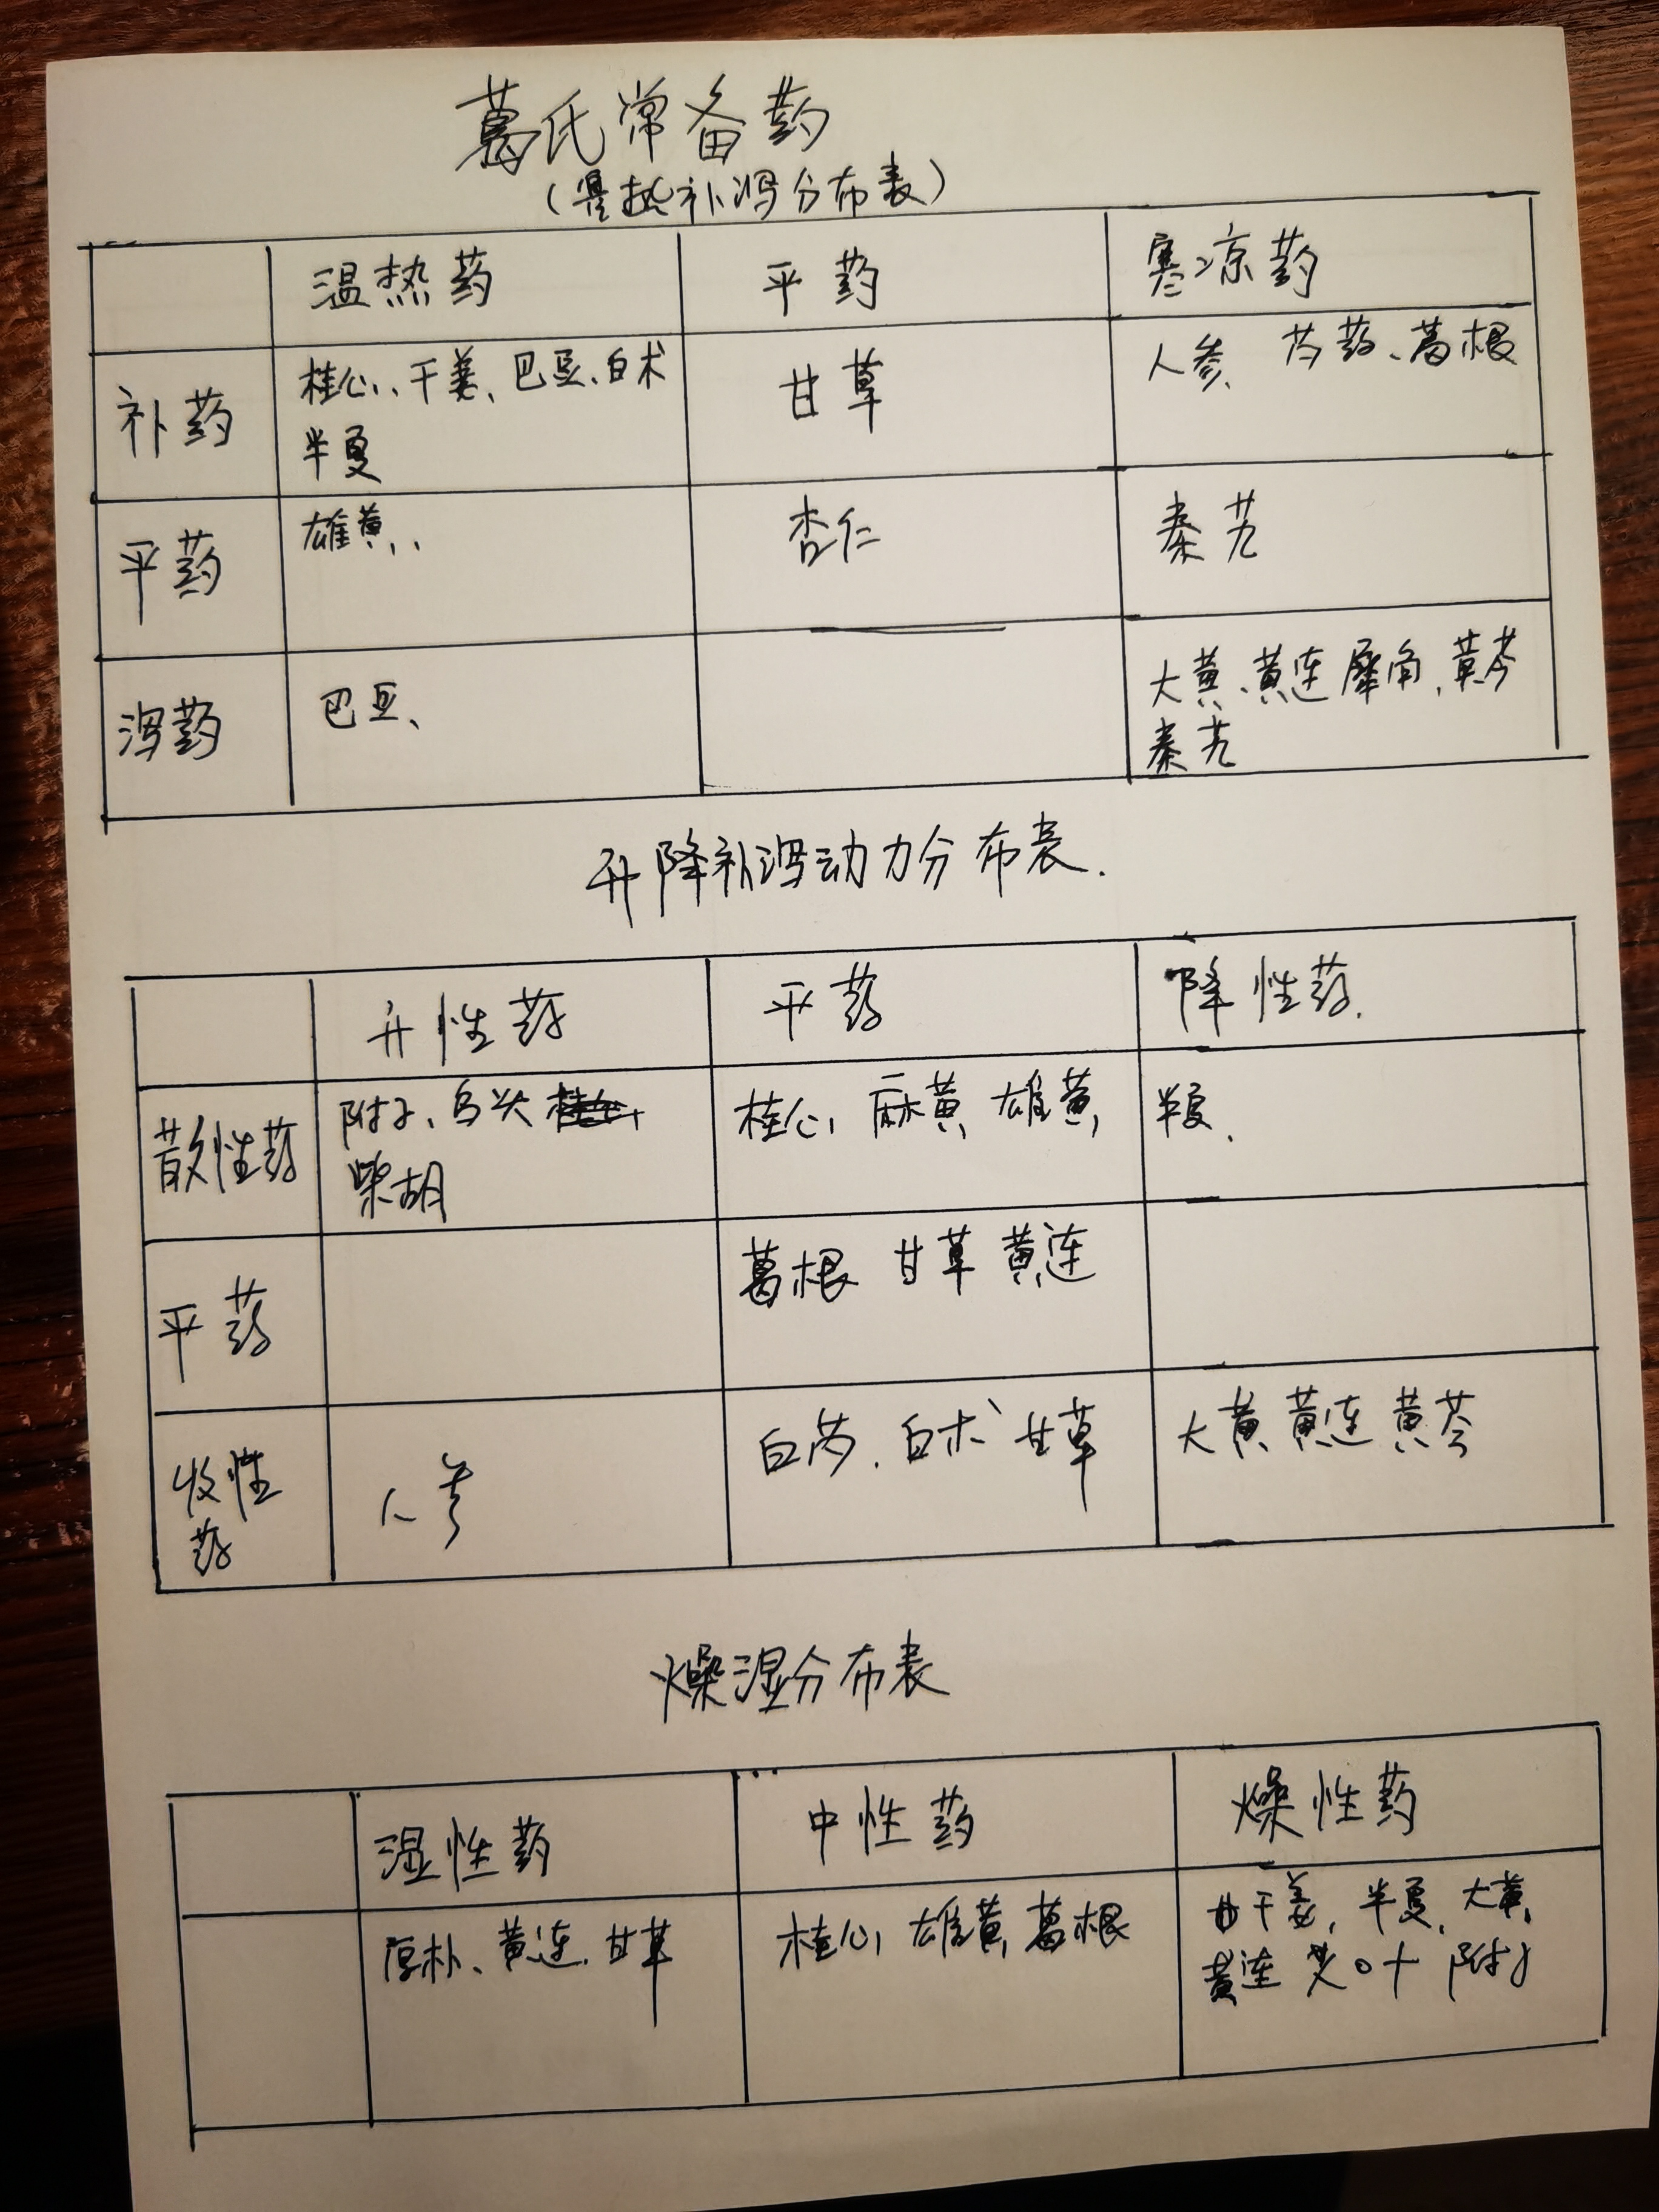 葛氏常备药
(寒热补泻分布表)
温热药 平药 寒凉药
补药 桂心、干姜、巴豆、白术 甘草 人参、芍药、葛根
半夏
平药 雄黄、 杏仁 秦艽
泻药 巴豆、 大黄、黄连 犀角、黄芩
秦艽
升降补泻动力分布表.
升性药 平药 降性药.
散性药 附子、乌头 桂心、麻黄、雄黄、 半夏、
柴胡
平药 葛根 甘草 黄连
收性 人参 白芍、白术、甘草 大黄 黄连 黄芩
药
燥湿分布表
湿性药 中性药 燥性药
厚朴、黄连、甘草 桂心、雄黄、葛根 干姜、半夏、大黄、
黄连 附子